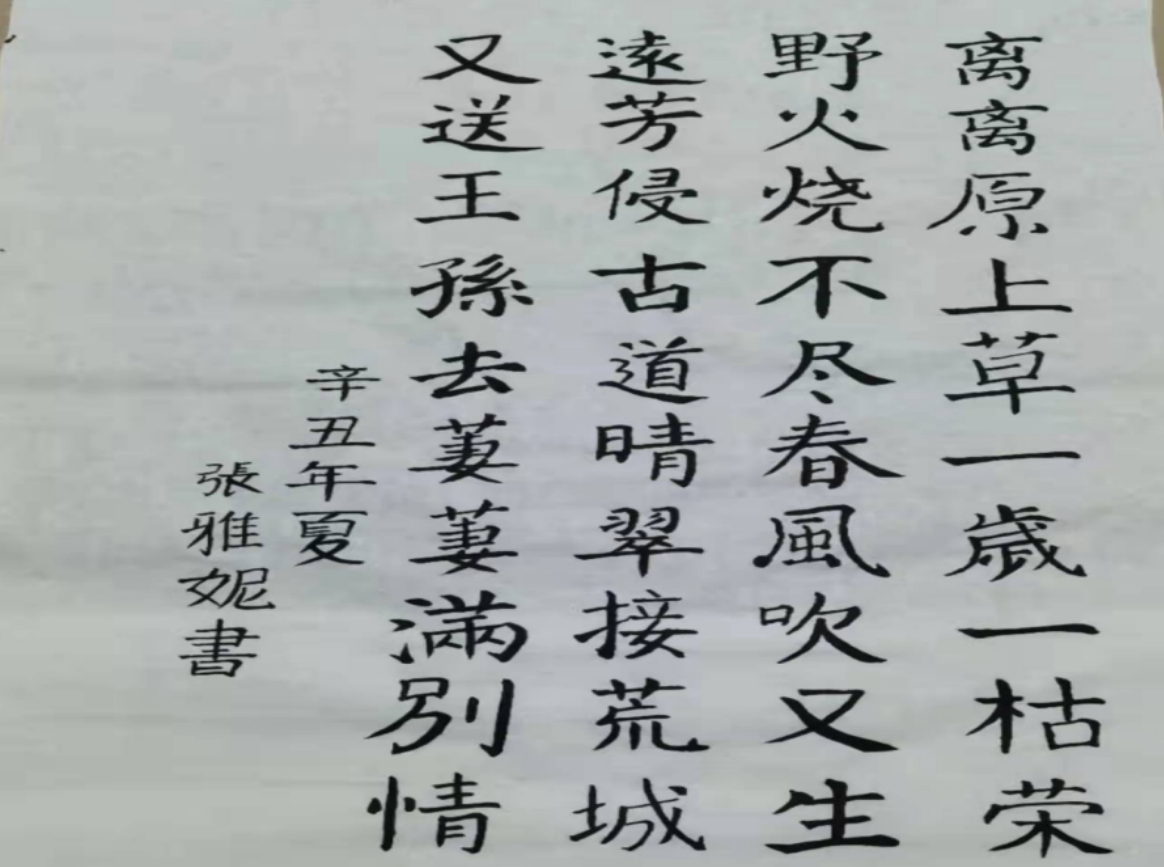 离离原上草一歳一枯荣
野火烧不尽春風吹又生
遠芳侵古道晴翠接荒城
又送王孫去萋萋滿别情
辛丑年夏
張雅妮書